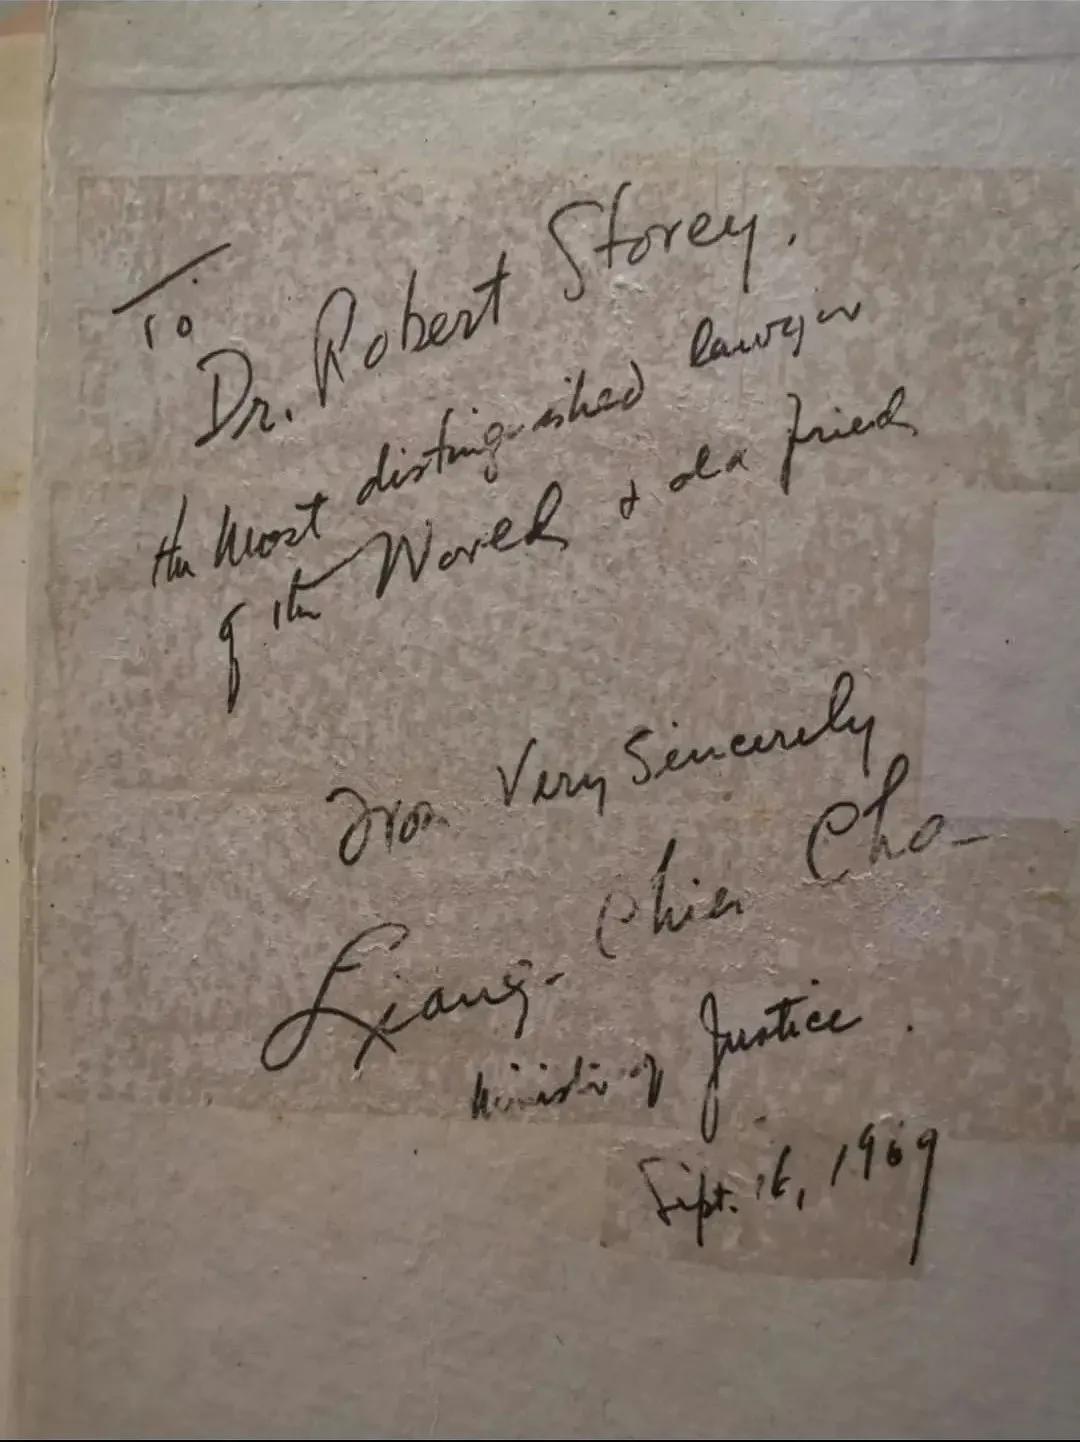 To
Dr. Robert Storey.
the Most distinguished lawyer
of the World & old friend
From Very Sincerely
Liang-Chien Cha
Minister of Justice.
Sept. 16, 1969